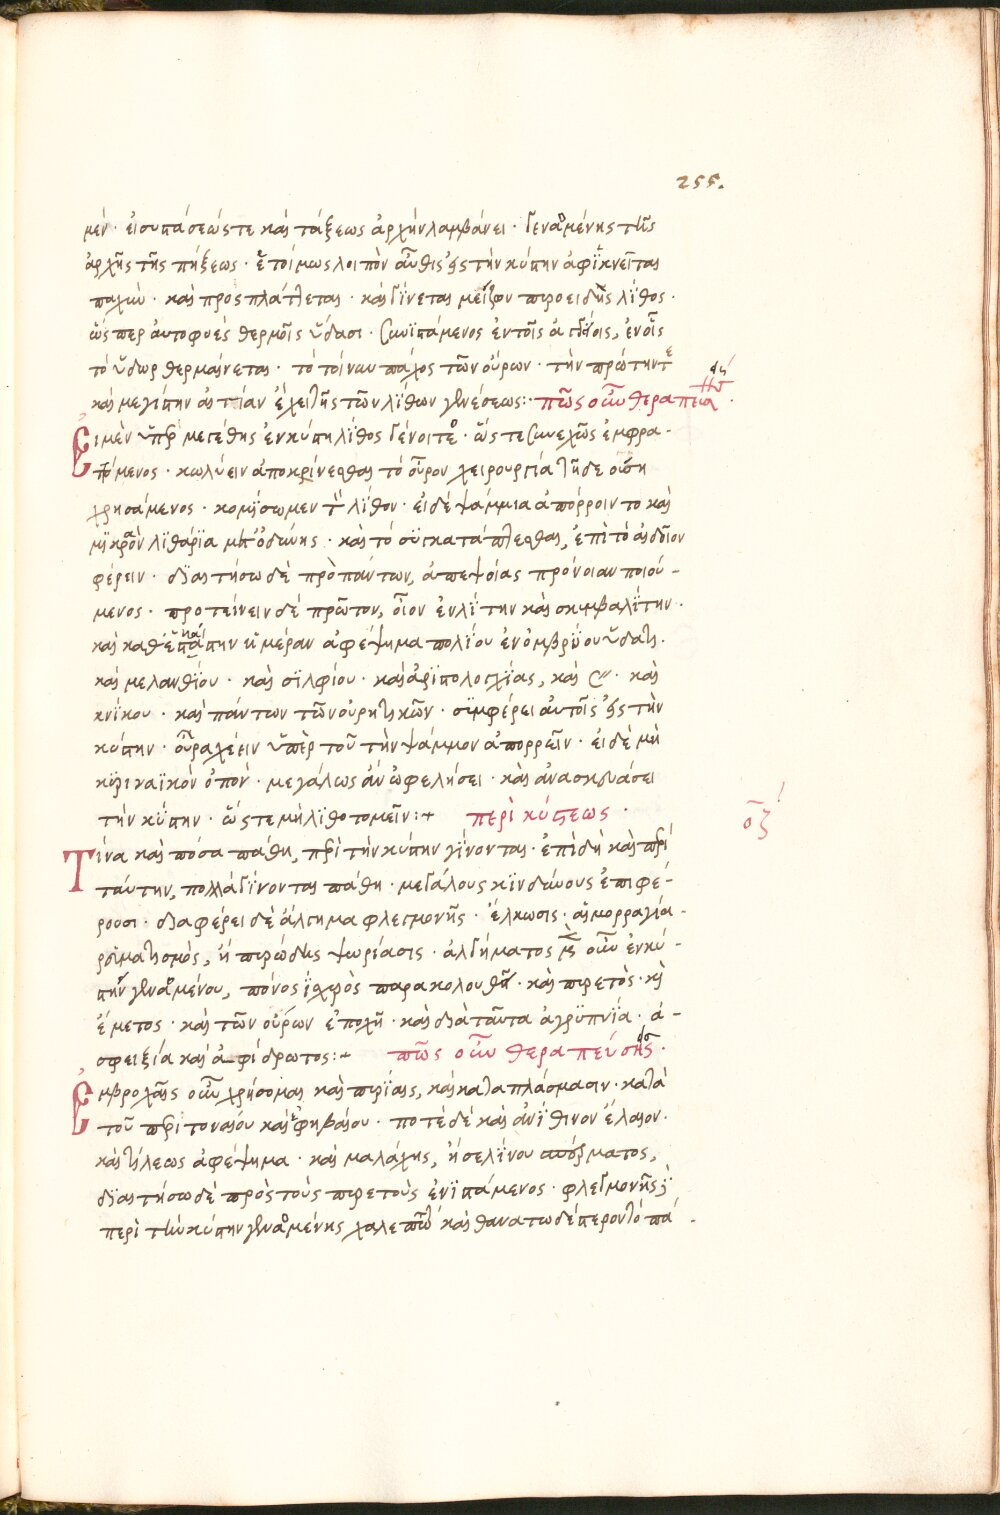 255.
μέν · εἰσυπάσεώς τε καὶ τάξεως ἀρχὴν λαμβάνει · γεναμένης τῆς
ἀρχῆς τῆς πήξεως · ἑτοίμως λοιπὸν αὖθις εἰς τὴν κύστην ἀφϊκνεῖται
παχὺ · καὶ προσπλάττεται · καὶ γίνεται μεῖζον πυροειδὴς λίθος ·
ὥσπερ αὐτοφυὲς θερμοῖς ὕδασι · συνϊστάμενος ἐν τοῖς ἀγγείοις, ἐν οἷς
τὸ ὕδωρ θερμαίνεται · τὸ τοίνυν πάχος τῶν οὔρων · τὴν πρώτην τε
καὶ μεγίστην αἰτίαν ἔχει τῆς τῶν λίθων γενέσεως :· πῶς οὖν θεραπεία
Εἰ μὲν ὑπερμεγέθης ἐν κύστη λίθος γένοιτο · ὥστε συνεχῶς ἐμφρα -
τόμενος · κωλύειν ἀποκρίνεσθαι τὸ οὖρον χειρουργία τῆδε
χρησάμενος · κομϊσωμεν τὸν λίθον · εἰ δὲ ψάμμια ἀπόρροιν το καὶ
μϊκρὰν λϊθάρϊα μετ᾽ ὀδύνης · καὶ τὸ συγκατάπλεσθαι, ἐπὶ τὸ αἰδοῖον
φέρειν · δϊαιτήσω δὲ πρὸ πάντων, ἀπεψίας πρόνοιαν ποιού -
μενος · προτείνειν δὲ πρῶτον, οἶον ἐνλίτην καὶ σκυβαλίτην ·
καὶ καθ᾽ ἑκάστην ἡμέραν ἀφέψημα πολίου ἐν ὀμβρίου ὕδατι.
καὶ μελανθίου · καὶ σϊλφίου · καὶ ἀρϊστολοχίας, καὶ · καὶ
κνίκου · καὶ πάντων τῶν οὐρητικῶν · συμφέρει αὐτοῖς εἰς τὴν
κύστην · οὐραχέειν ὑπὲρ τοῦ τὴν ψάμμον ἀπορρεῖν · εἰ δὲ μὴ
κυριναϊκὸν ὀπὸν · μεγάλως ἂν ὠφελήσει · καὶ ἀνασκευάσει
τὴν κύστην · ὥστε μὴ λϊθοτομεῖν :+ περὶ κύστεως ·
οζ
Τίνα καὶ πόσα πάθη, περὶ τὴν κύστην γίνονται · ἐπιδὴ καὶ περὶ
ταύτην, πολλὰ γίνονται πάθη · μεγάλους κϊνδύνους ἐπιφέ -
ρουσι · διαφέρει δὲ ἄλγημα φλεγμονῆς · ἕλκωσις · αἱμορραγία -
ρευματισμὸς, ἢ πυρώδης ψωρίασις · ἀλγήματος μὲν οὖν ἐν κύ -
στην γεναμένου, πόνος ἰσχυρὸς παρακολουθεῖ · καὶ πυρετὸς · καὶ
ἔμετος · καὶ τῶν οὔρων ἐποχῆ · καὶ διὰ ταῦτα ἀγρϋπνία · ἀ -
σφειξία καὶ ἀφίδρωτος :+ πῶς οὖν θεραπεύσης ·
Ἐμβροχαῖς οὖν χρήσομαι καὶ πυρίαις, καὶ καταπλάσμασιν · κατὰ
τοῦ περιτοναίου καὶ ἐφηβαίου · ποτὲ δὲ καὶ ἀνίθινον ἔλαιον ·
καὶ τήλεως ἀφέψημα · καὶ μαλάχης, ἢ σελίνου ματος,
δϊαιτήσω δὲ πρὸς τοὺς πυρετοὺς ἐνϊστάμενος · φλεγμονῆς
περὶ τὴν κύστην γεναμένης χαλεπὸν καὶ θανατωδέστερον τὸ πά -